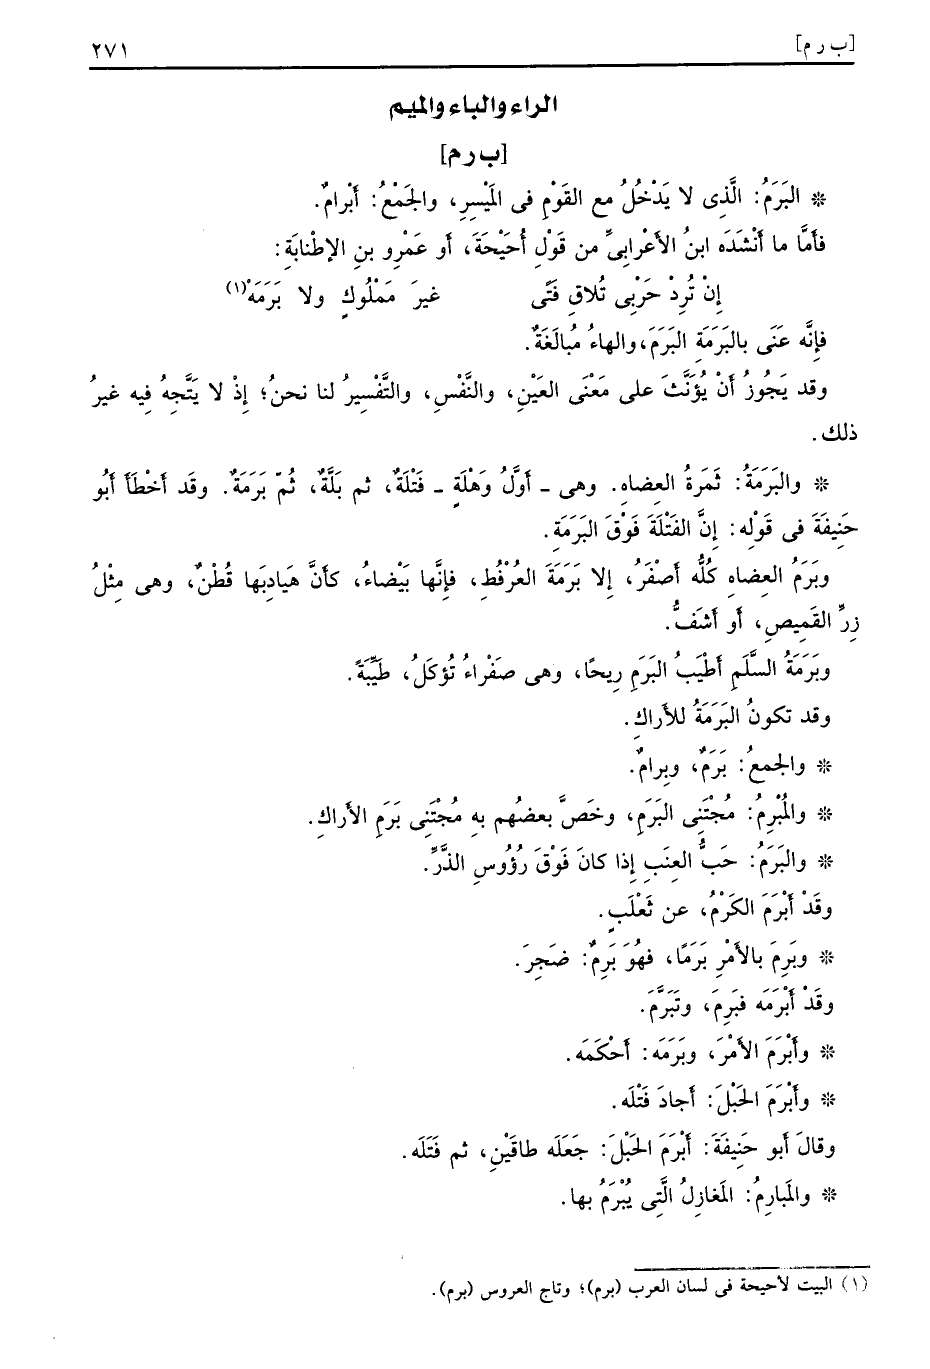 [ب ر م] ٢٧١
الراء والباء والميم
[ب ر م]
* البَرَمُ: الَّذِى لا يَدْخُلُ مع القَوْمِ فى المَيْسِرِ، والجَمْعُ: أَبْرامٌ.
فأَمَّا ما أَنْشَدَه ابنُ الأَعْرابىِّ من قَوْلِ أُحَيْحَةَ، أو عَمْرِو بنِ الإطْنابَةِ:
إِنْ تُرِدْ حَرْبِى تُلاقِ فَتًى غيرَ مَمْلُوكٍ ولا بَرَمَهْ(١)
فإِنَّه عَنَى بالبَرَمَةِ البَرَمَ، والهاءُ مُبالَغَةٌ.
وقد يَجُوزُ أَنْ يُؤَنَّثَ على مَعْنَى العَيْنِ، والنَّفْسِ، والتَّفْسِيرُ لنا نحنُ؛ إِذْ لا يَتَّجِهُ فيه غيرُ
ذلك.
* والبَرَمَةُ: ثَمَرَةُ العِضاهِ. وهى ـ أَوَّلُ وَهْلَةٍ ـ فَتْلَةٌ، ثم بَلَّةٌ، ثُمّ بَرَمَةٌ. وقد أخْطَأَ أبُو
حَنِيفَةَ فى قَوْلِه: إِنَّ الفَتْلَةَ فَوْقَ البَرَمَةِ.
وبَرَمُ العضاه كُلُّه أصْفَرُ، إلا بَرَمَةَ العُرْفُطِ، فإِنَّها بَيْضاءُ، كأَنَّ هَيادِبَها قُطْنٌ، وهى مِثْلُ
زِرِّ القَمِيصِ، أو أَشَفُّ.
وبَرَمَةُ السَّلَمِ أطْيَبُ البَرَمِ رِيحًا، وهى صفْراءُ تُؤكَلُ، طَيِّبَةً.
وقد تكونُ البَرَمَةُ للأَراكِ.
* والجمعُ: بَرَمٌ، وبِرامٌ.
* والمُبْرِمُ: مُجْتَنِى البَرَمِ، وخَصَّ بعضُهم به مُجْتَنِى بَرَمِ الأَراكِ.
* والبَرَمُ: حَبُّ العِنَبِ إذا كانَ فَوْقَ رُؤُوسِ الذَّرِّ.
وقَدْ أَبْرَمَ الكَرْمُ، عن ثَعْلَبٍ.
* وبَرِمَ بالأَمْرِ بَرَمًا، فهُوَ بَرِمٌ: ضَجِرَ.
وقَدْ أَبْرَمَه فبَرِمَ، وتَبَرَّمَ.
* وأَبْرَمَ الأمْرَ، وبَرَمَه: أحْكَمَه.
* وأَبْرَمَ الحَبْلَ: أجادَ فَتْلَه.
وقالَ أبو حَنِيفَةَ: أَبْرَمَ الحَبْلَ: جَعَلَه طاقَيْنِ، ثم فَتَلَه.
* والمَبارِمُ: المَغازِلُ الَّتِى يُبْرَمُ بها.
(١) البيت لأحيحة فى لسان العرب (برم)؛ وتاج العروس (برم).